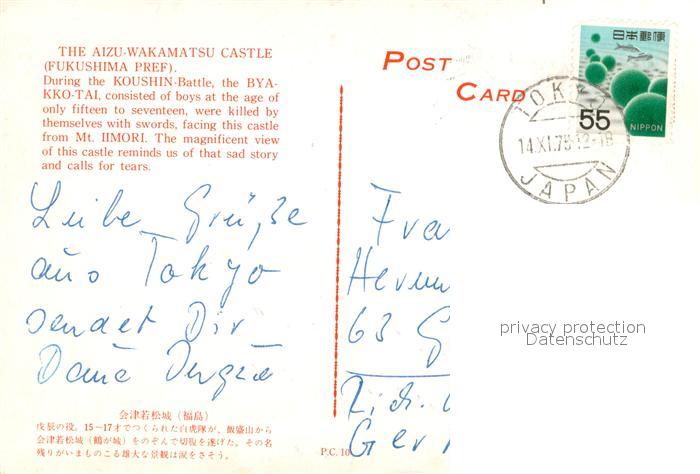 THE AIZU-WAKAMATSU CASTLE
(FUKUSHIMA PREF).
During the KOUSHIN-Battle, the BYA-
KKO-TAI, consisted of boys at the age of
only fifteen to seventeen, were killed by
themselves with swords, facing this castle
from Mt. IIMORI. The magnificent view
of this castle reminds us of that sad story
and calls for tears.
Liebe Grüße
aus Tokyo
sendet Dir
会津若松城(福島)
戊辰の役。15~17才でつくられた白虎隊が、飯盛山から
会津若松城(鶴が城)をのぞんで切腹を遂げた。その名
残りがいまものこる雄大な景観は涙をさそう。
P.C. 10
POST
CARD
日本郵便
55
NIPPON
TOKYO
14.XI.75 12-18
JAPAN
Fra
63
Ger
privacy protection
Datenschutz